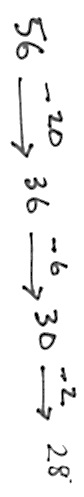 56 -20→ 36 -6→ 30 -2→ 28